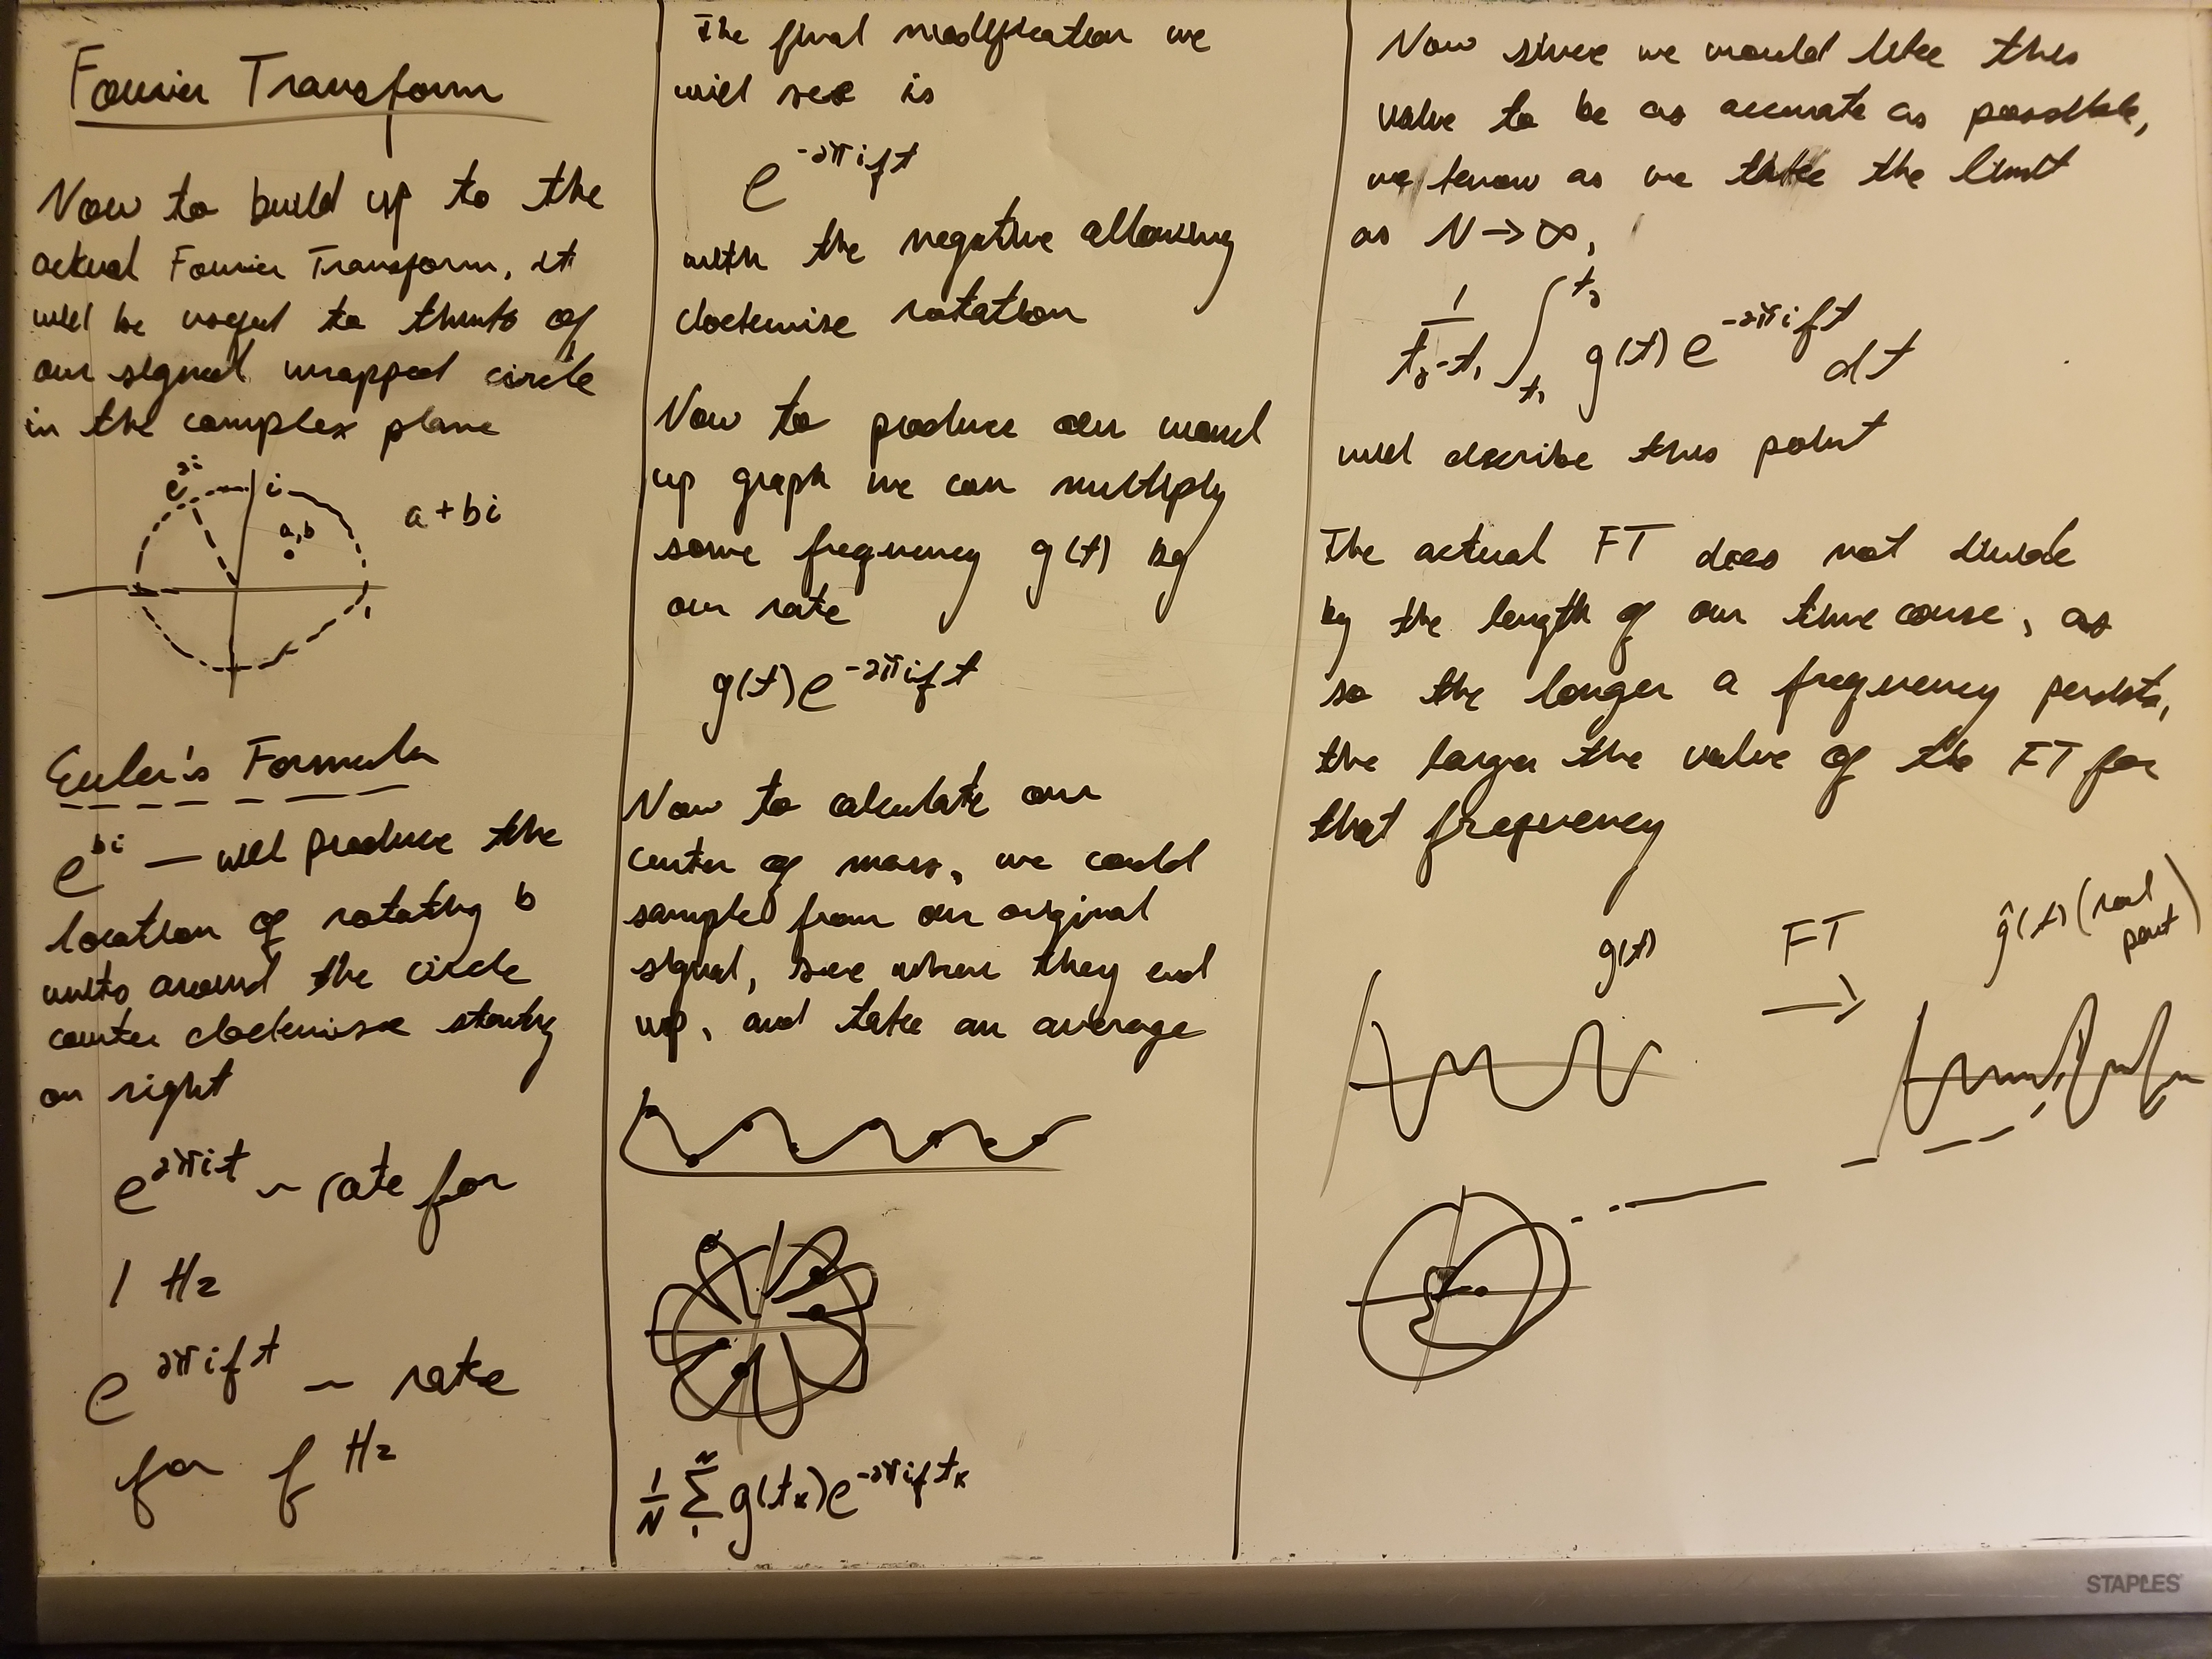 Fourier Transform
Now to build up to the
actual Fourier Transform, it
will be useful to think of
our signal wrapped circle
in the complex plane
e^{2i}
i
a,b
a+bi
1
Euler's Formula
e^{bi} — will produce the
location of rotating b
units around the circle
counter clockwise starting
on right
e^{2πit} ~ rate for
1 Hz
e^{2πift} ~ rate
for f Hz
The final modification we
will see is
e^{-2πift}
with the negative allowing
clockwise rotation
Now to produce our wound
up graph we can multiply
some frequency g(t) by
our rate
g(t)e^{-2πift}
Now to calculate our
center of mass, we could
sample from our original
signal, see where they end
up, and take an average
1/N Σ_{1}^{N} g(t_k)e^{-2πift_k}
Now since we would like this
value to be as accurate as possible,
we know as we take the limit
as N→∞,
1/(t₂-t₁) ∫_{t₁}^{t₂} g(t)e^{-2πift} dt
will describe this point
The actual FT does not divide
by the length of our time course, as
so the longer a frequency persists,
the larger the value of the FT for
that frequency
g(t) FT ĝ(t)(real
part)
→
STAPLES